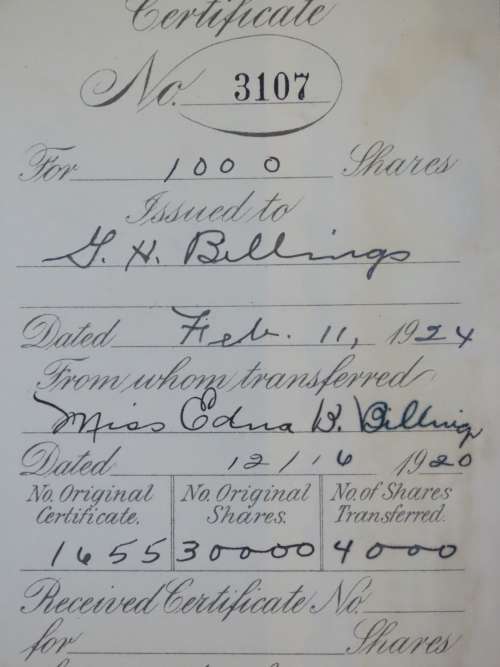 Certificate
No. 3107
For 1000 Shares
Issued to
G. H. Billings
Dated Feb. 11, 1924
From whom transferred
Miss Edna B. Billings
Dated 12/16 1920
No. Original Certificate. No. Original Shares. No. of Shares Transferred.
1655 30000 4000
Received Certificate No.
for Shares